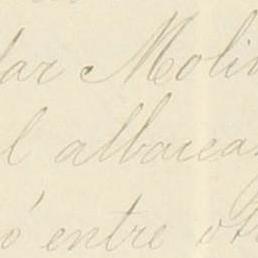 dar Molin
l albacea
ó entre otr